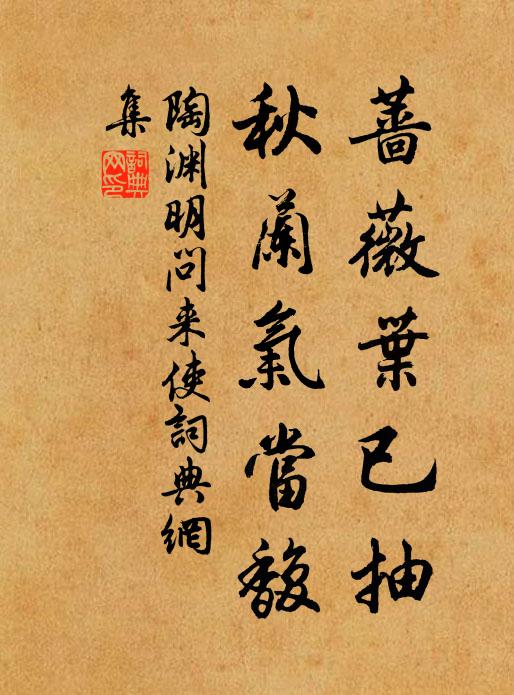 薔薇葉已抽
秋蘭氣當馥
陶渊明问来使詞典網
集
詞典
网印